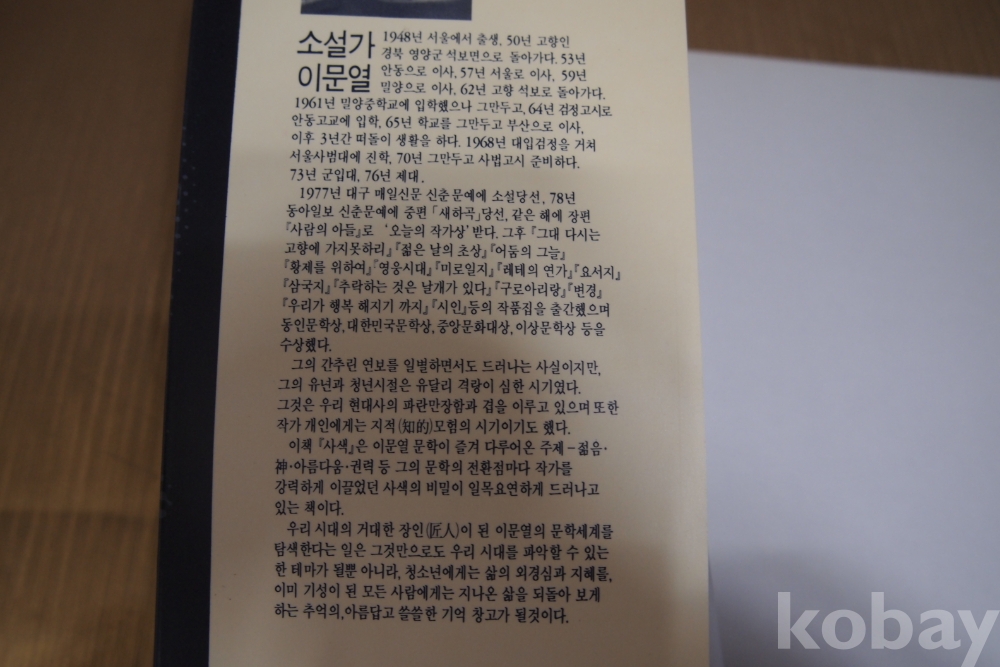 소설가
이문열
1948년 서울에서 출생, 50년 고향인
경북 영양군 석보면으로 돌아가다. 53년
안동으로 이사, 57년 서울로 이사, 59년
밀양으로 이사, 62년 고향 석보로 돌아가다.
1961년 밀양중학교에 입학했으나 그만두고, 64년 검정고시로
안동고교에 입학, 65년 학교를 그만두고 부산으로 이사,
이후 3년간 떠돌이 생활을 하다. 1968년 대입검정을 거쳐
서울사범대에 진학, 70년 그만두고 사법고시 준비하다.
73년 군입대, 76년 제대.
1977년 대구 매일신문 신춘문예에 소설당선, 78년
동아일보 신춘문예에 중편 「새하곡」당선, 같은 해에 장편
『사람의 아들』로 '오늘의 작가상'받다. 그후 『그대 다시는
고향에 가지못하리』『젊은 날의 초상』『어둠의 그늘』
『황제를 위하여』『영웅시대』『미로일지』『레테의 연가』『요서지』
『삼국지』『추락하는 것은 날개가 있다』『구로아리랑』『변경』
『우리가 행복 해지기 까지』『시인』등의 작품집을 출간했으며
동인문학상, 대한민국문학상, 중앙문화대상, 이상문학상 등을
수상했다.
그의 간추린 연보를 일별하면서도 드러나는 사실이지만,
그의 유년과 청년시절은 유달리 격랑이 심한 시기였다.
그것은 우리 현대사의 파란만장함과 겹을 이루고 있으며 또한
작가 개인에게는 지적(知的)모험의 시기이기도 했다.
이책 『사색』은 이문열 문학이 즐겨 다루어온 주제－젊음·
神·아름다움·권력 등 그의 문학의 전환점마다 작가를
강력하게 이끌었던 사색의 비밀이 일목요연하게 드러나고
있는 책이다.
우리 시대의 거대한 장인(匠人)이 된 이문열의 문학세계를
탐색한다는 일은 그것만으로도 우리 시대를 파악할 수 있는
한 테마가 될뿐 아니라, 청소년에게는 삶의 외경심과 지혜를,
이미 기성이 된 모든 사람에게는 지나온 삶을 되돌아 보게
하는 추억의, 아름답고 쓸쓸한 기억 창고가 될것이다.
kobay